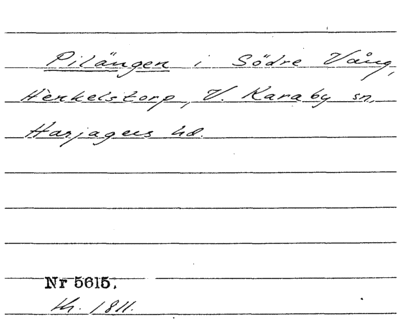 Pilängen i Södre Vång,
Henkelstorp, V. Karaby sn,
Harjagers hd.
Nr 5615.
th. 1811.